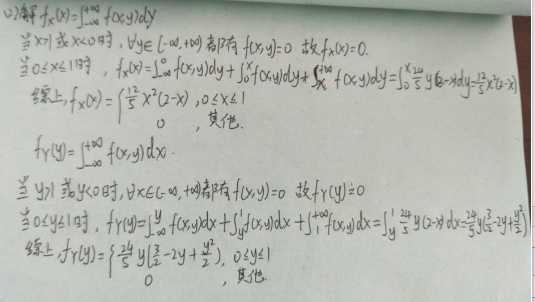 (2)解 fx(x)=∫_{-∞}^{+∞} f(x,y)dy
当x>1或x<0时, ∀y∈(-∞,+∞)都有f(x,y)=0 故fx(x)=0.
当0≤x≤1时, fx(x)=∫_{-∞}^{0} f(x,y)dy+∫_{0}^{x} f(x,y)dy+∫_{x}^{+∞} f(x,y)dy=∫_{0}^{x} 24/5 y(2-x)dy=12/5 x²(2-x)
综上, fx(x)={12/5 x²(2-x), 0≤x≤1
0, 其他.
fY(y)=∫_{-∞}^{+∞} f(x,y)dx.
当y>1或y<0时, ∀x∈(-∞,+∞)都有f(x,y)=0 故fY(y)=0
当0≤y≤1时, fY(y)=∫_{-∞}^{y} f(x,y)dx+∫_{y}^{1} f(x,y)dx+∫_{1}^{+∞} f(x,y)dx=∫_{y}^{1} 24/5 y(2-x)dx=24/5 y(3/2-2y+y²/2)
综上, fY(y)={24/5 y(3/2-2y+y²/2), 0≤y≤1
0, 其他.